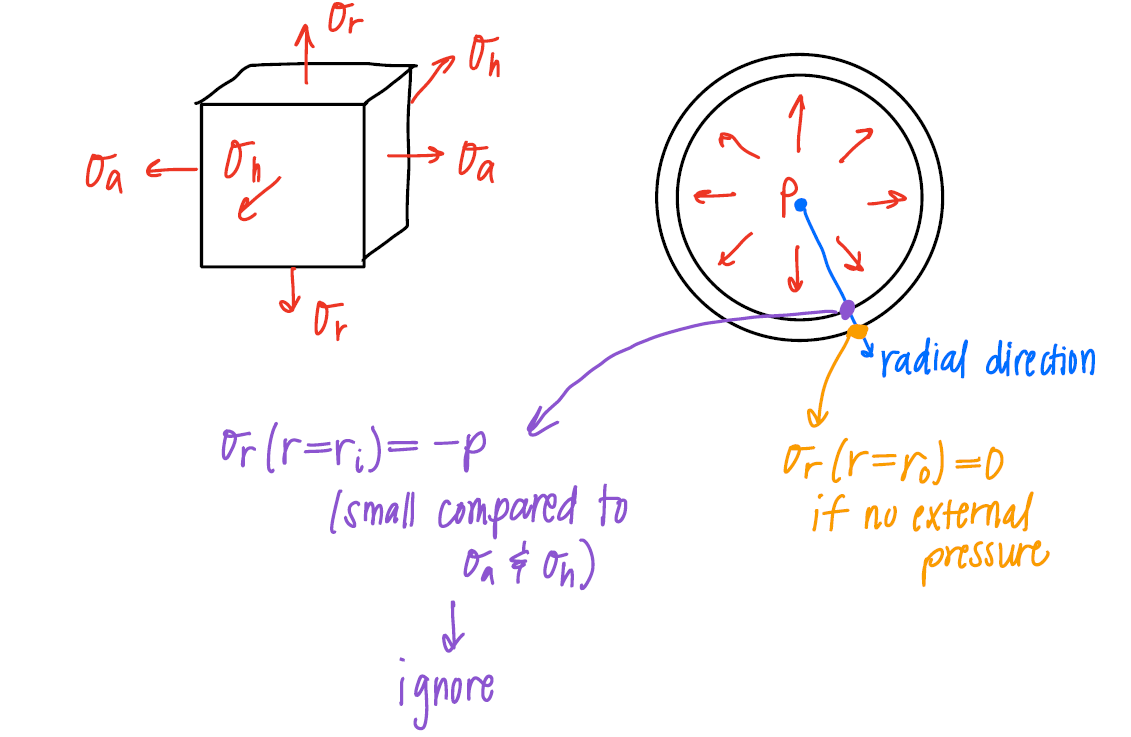 σr
σh
σa
σh
σa
σr
P
radial direction
σr(r=ri)=-p
(small compared to
σa & σh)
ignore
σr(r=ro)=0
if no external
pressure